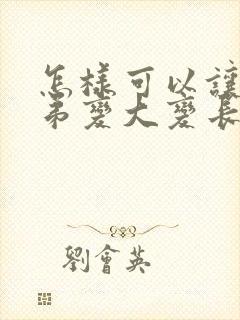 怎樣可以讓
弟變大變長
劉會英